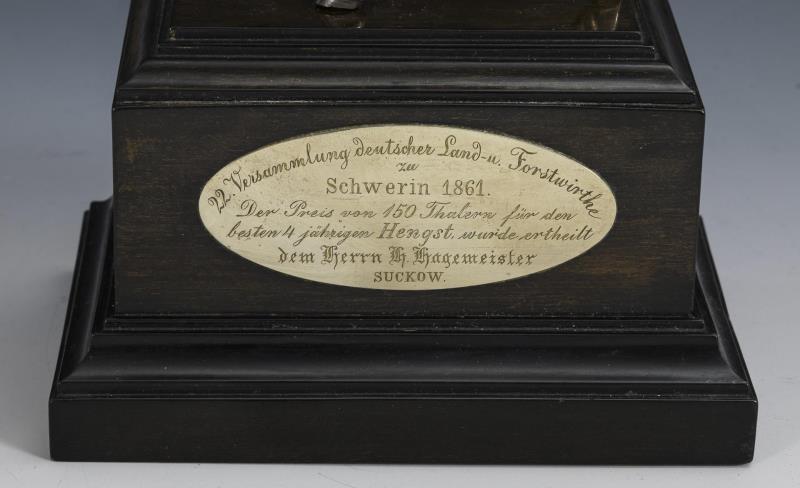 22. Versammlung deutscher Land- u. Forstwirthe
zu
Schwerin 1861.
Der Preis von 150 Thalern für den
besten 4 jährigen Hengst, wurde ertheilt
dem Herrn H. Hagemeister
SUCKOW.